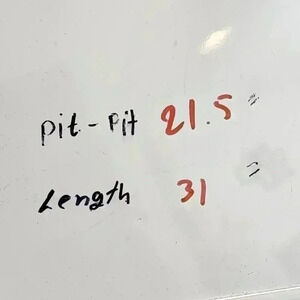 Pit-Pit 21.5"
Length 31"